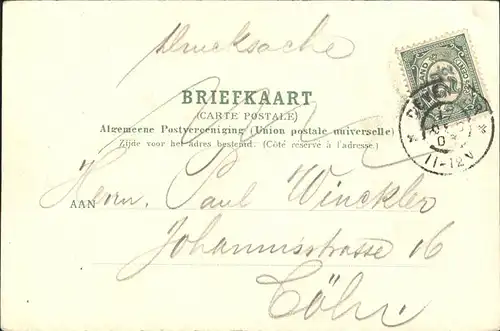 Drucksache
BRIEFKAART
(CARTE POSTALE)
Algemeene Postvereeniging (Union postale universelle)
Zijde voor het adres bestemd. (Côté réservé à l'adresse.)
AAN Herrn. Paul Winckler
Johannisstrasse 16
Cöln
11-12V